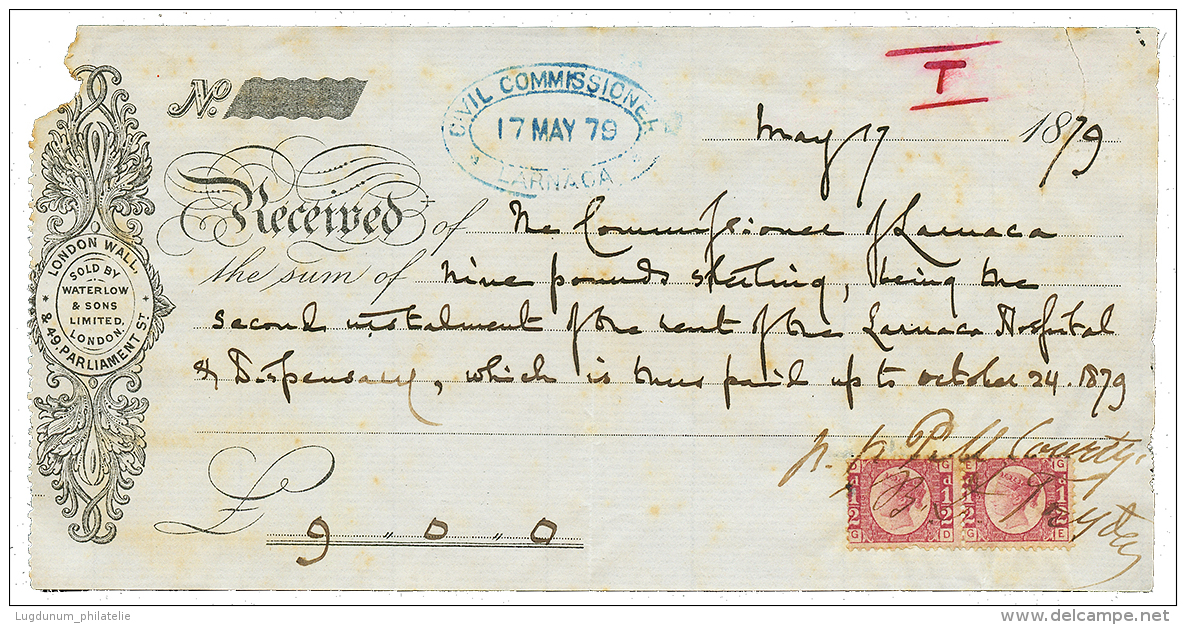 No.
CIVIL COMMISSIONER
17 MAY 79
LARNACA
T
May 17 1879
Received of The Commissioner of Larnaca
the sum of nine pounds sterling, being the
second instalment of the rent of the Larnaca Hospital
& Dispensary, which is thus paid up to October 24. 1879
LONDON WALL,
& 49 PARLIAMENT ST
SOLD BY
WATERLOW
& SONS
LIMITED.
LONDON.
£ 9 „ 0 „ 0
D G
E G
d 1/2
d 1/2
G D
G E
Lugdunum_philatelie
www.delcampe.net